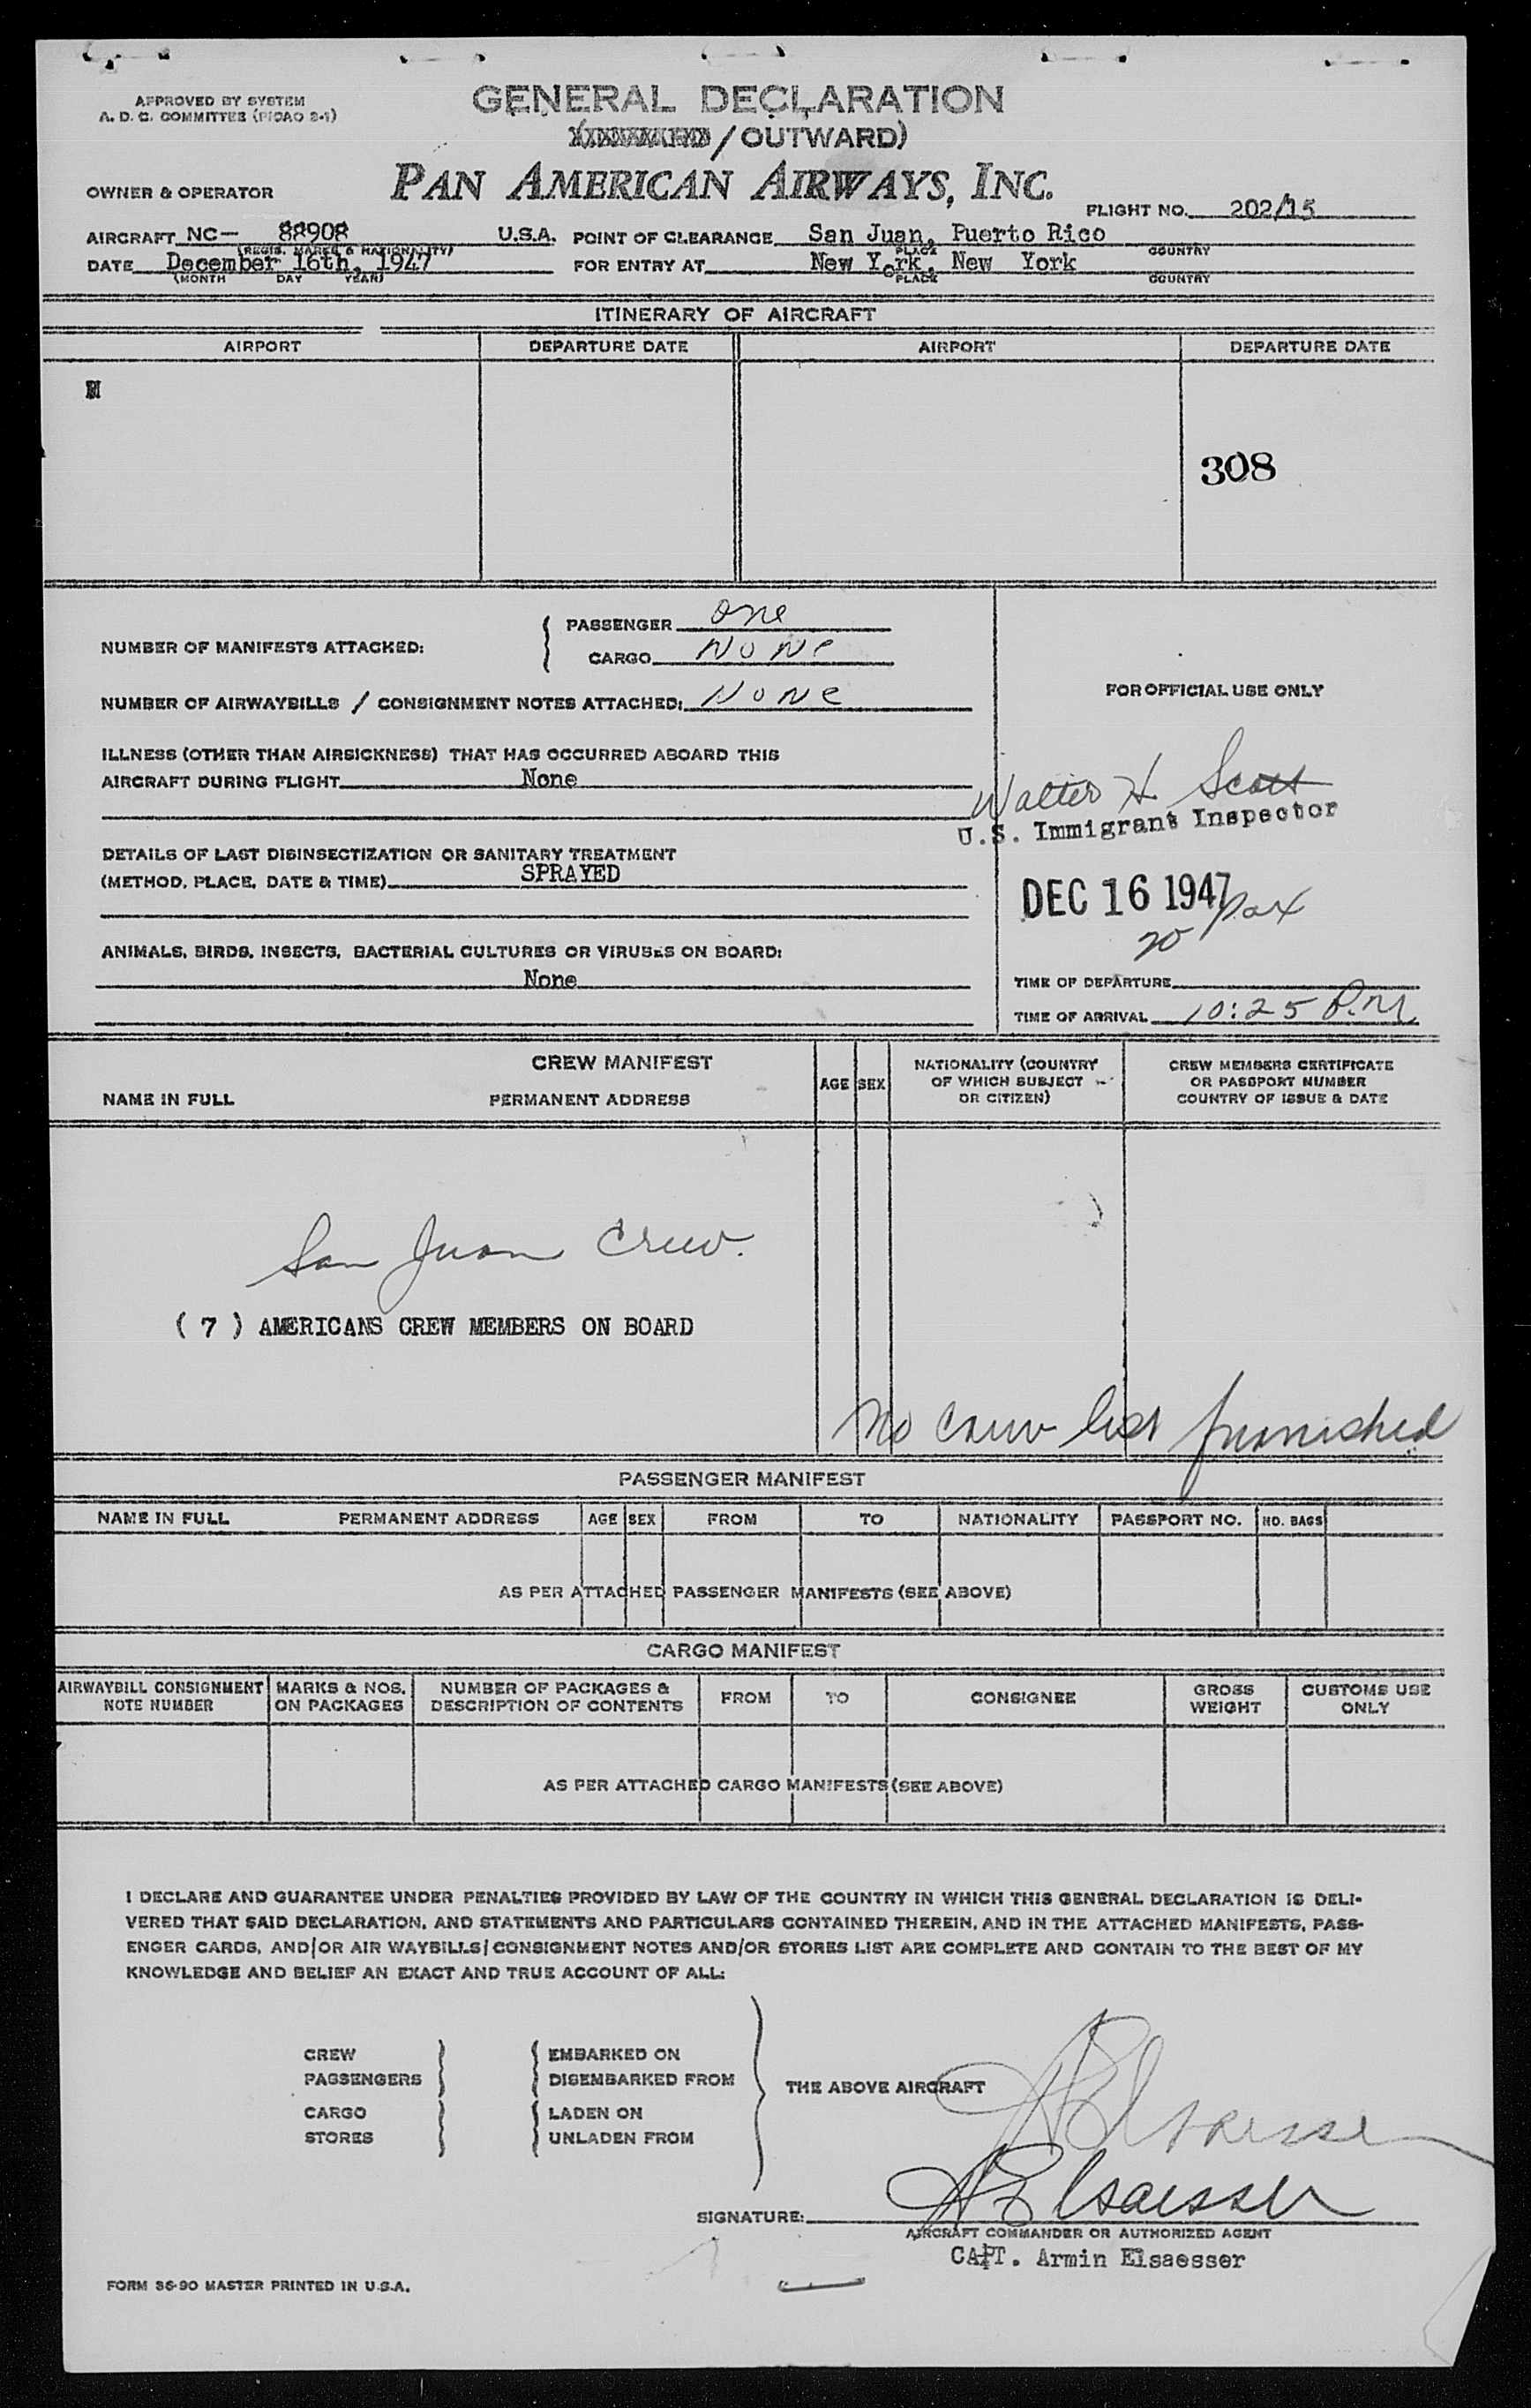 APPROVED BY SYSTEM
A. D. C. COMMITTEE (PICAO 2-1)
GENERAL DECLARATION
(INWARD / OUTWARD)
PAN AMERICAN AIRWAYS, INC.
OWNER & OPERATOR
FLIGHT NO. 202/15
AIRCRAFT NC- 88908 U.S.A. POINT OF CLEARANCE San Juan, Puerto Rico
(REGIS. MARKS & NATIONALITY) PLACE COUNTRY
DATE December 16th, 1947 FOR ENTRY AT New York, New York
(MONTH DAY YEAR) PLACE COUNTRY
ITINERARY OF AIRCRAFT
AIRPORT DEPARTURE DATE AIRPORT DEPARTURE DATE
308
NUMBER OF MANIFESTS ATTACHED: PASSENGER One
CARGO None
NUMBER OF AIRWAYBILLS / CONSIGNMENT NOTES ATTACHED: None
FOR OFFICIAL USE ONLY
ILLNESS (OTHER THAN AIRSICKNESS) THAT HAS OCCURRED ABOARD THIS
AIRCRAFT DURING FLIGHT None
Walter H Scott
U.S. Immigrant Inspector
DETAILS OF LAST DISINSECTIZATION OR SANITARY TREATMENT
(METHOD, PLACE, DATE & TIME) SPRAYED
DEC 16 1947
20 Pax
ANIMALS, BIRDS, INSECTS, BACTERIAL CULTURES OR VIRUSES ON BOARD:
None
TIME OF DEPARTURE
TIME OF ARRIVAL 10:25 P.M
CREW MANIFEST
NAME IN FULL PERMANENT ADDRESS AGE SEX NATIONALITY (COUNTRY OF WHICH SUBJECT OR CITIZEN) CREW MEMBERS CERTIFICATE OR PASSPORT NUMBER COUNTRY OF ISSUE & DATE
San Juan Crew.
( 7 ) AMERICANS CREW MEMBERS ON BOARD
No crew list furnished
PASSENGER MANIFEST
NAME IN FULL PERMANENT ADDRESS AGE SEX FROM TO NATIONALITY PASSPORT NO. NO. BAGS
AS PER ATTACHED PASSENGER MANIFESTS (SEE ABOVE)
CARGO MANIFEST
AIRWAYBILL CONSIGNMENT NOTE NUMBER MARKS & NOS. ON PACKAGES NUMBER OF PACKAGES & DESCRIPTION OF CONTENTS FROM TO CONSIGNEE GROSS WEIGHT CUSTOMS USE ONLY
AS PER ATTACHED CARGO MANIFESTS (SEE ABOVE)
I DECLARE AND GUARANTEE UNDER PENALTIES PROVIDED BY LAW OF THE COUNTRY IN WHICH THIS GENERAL DECLARATION IS DELI-
VERED THAT SAID DECLARATION, AND STATEMENTS AND PARTICULARS CONTAINED THEREIN, AND IN THE ATTACHED MANIFESTS, PASS-
ENGER CARDS, AND/OR AIR WAYBILLS/CONSIGNMENT NOTES AND/OR STORES LIST ARE COMPLETE AND CONTAIN TO THE BEST OF MY
KNOWLEDGE AND BELIEF AN EXACT AND TRUE ACCOUNT OF ALL:
CREW EMBARKED ON
PASSENGERS DISEMBARKED FROM
THE ABOVE AIRCRAFT
CARGO LADEN ON
STORES UNLADEN FROM
A Elsaesser
SIGNATURE: A Elsaesser
AIRCRAFT COMMANDER OR AUTHORIZED AGENT
CAPT. Armin Elsaesser
FORM 36-90 MASTER PRINTED IN U.S.A.